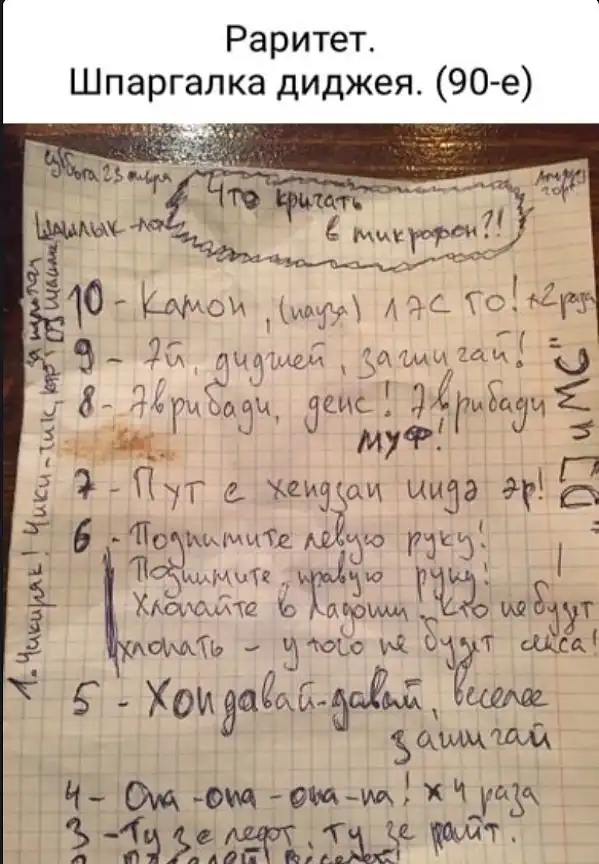 Раритет.
Шпаргалка диджея. (90-е)
суббота 23
Что кричать
в микрофон?!
Шашлык-
10 - Камон, (пауза) лэс го! х2 раза
9 - Эй, диджей, зажигай!
8 - Эврибади, денс! Эврибади
МУФ!
7 - Пут е хендзап инда эр!
6 - Поднимите левую руку!
Поднимите правую руку!
Хлопайте в ладоши. Кто не будет
хлопать - у того не будет секса!
5 - Хоп давай-давай, веселее
зажигай
4 - Опа - опа - опа - па! х 4 раза
3 - Ту зе лефт, ту зе райт.
1. Чикиряк! Чики-чик,
"DJ и MC"